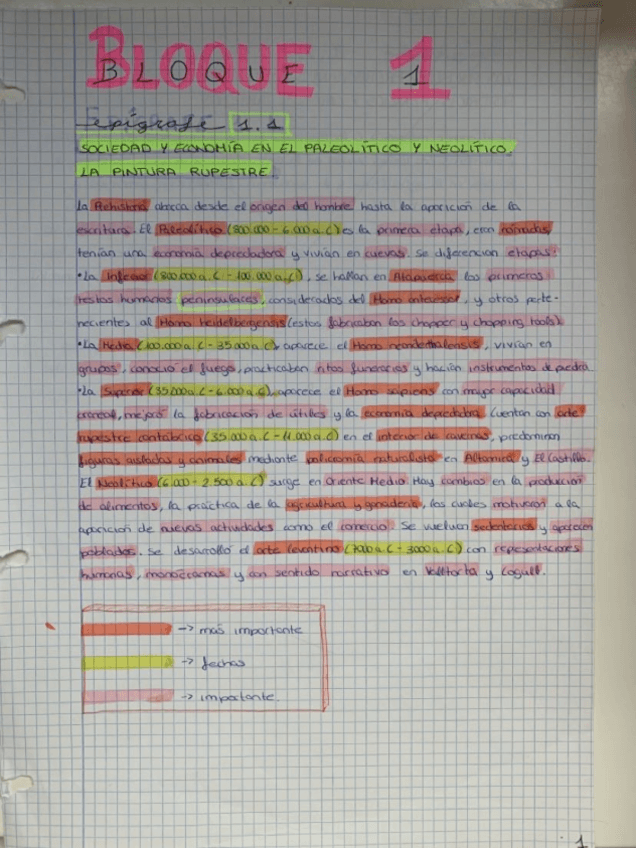 BLOQUE 1
Epígrafe 1.1
SOCIEDAD Y ECONOMÍA EN EL PALEOLÍTICO Y NEOLÍTICO.
LA PINTURA RUPESTRE
La Prehistoria abarca desde el origen del hombre hasta la aparición de la
escritura. El Paleolítico (800.000 - 6.000 a.C) es la primera etapa, eran nómadas,
tenían una economía depredadora y vivían en cuevas. Se diferencian etapas:
• La Inferior (800.000 a.C - 100.000 a.C), se hallan en Atapuerca los primeros
restos humanos peninsulares, considerados del Homo antecessor, y otros perte-
necientes al Homo heidelbergensis (estos fabricaban los chopper y chopping tools).
• La Media (100.000 a.C - 35.000 a.C), aparece el Homo neanderthalensis, vivían en
grupos, conoció el fuego, practicaban ritos funerarios y hacían instrumentos de piedra.
• La Superior (35.000 a.C - 6.000 a.C), aparece el Homo sapiens con mayor capacidad
craneal, mejoró la fabricación de útiles y la economía depredadora. Cuentan con arte
rupestre cantábrico (35.000 a.C - 11.000 a.C) en el interior de cavernas, predominan
figuras aisladas y animales mediante policromía naturalista en Altamira y El Castillo.
El Neolítico (6.000 - 2.500 a.C) surge en Oriente Medio. Hay cambios en la producción
de alimentos, la práctica de la agricultura y ganadería, los cuales motivaron a la
aparición de nuevas actividades como el comercio. Se vuelven sedentarios y aparecen
poblados. Se desarrolló el arte levantino (7000 a.C - 3000 a.C) con representaciones
humanas, monocromas y con sentido narrativo en Valltorta y Cogull.
-> más importante
-> fechas
-> importante.
1